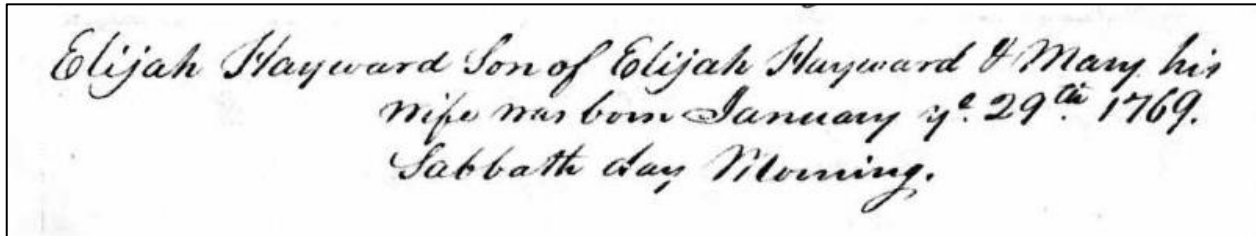 Elijah Hayward Son of Elijah Hayward & Mary his
wife was born January ye. 29th. 1769.
Sabbath day Morning.